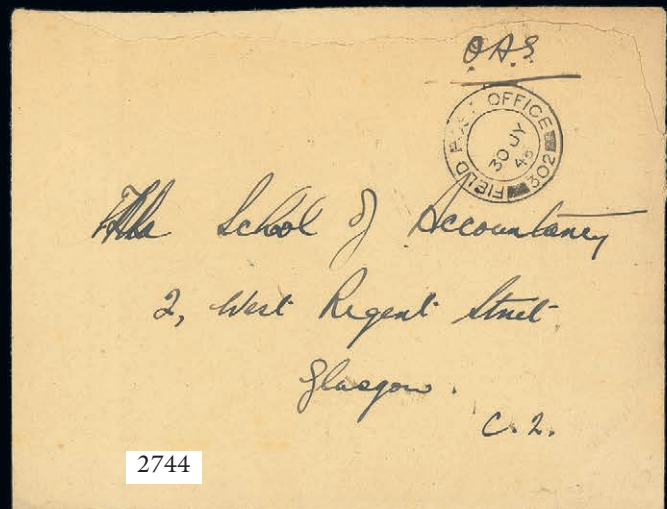 OAS
FIELD POST OFFICE 302
30 JY
45
The School of Accountancy
2, West Regent Street
Glasgow.
C. 2.
2744